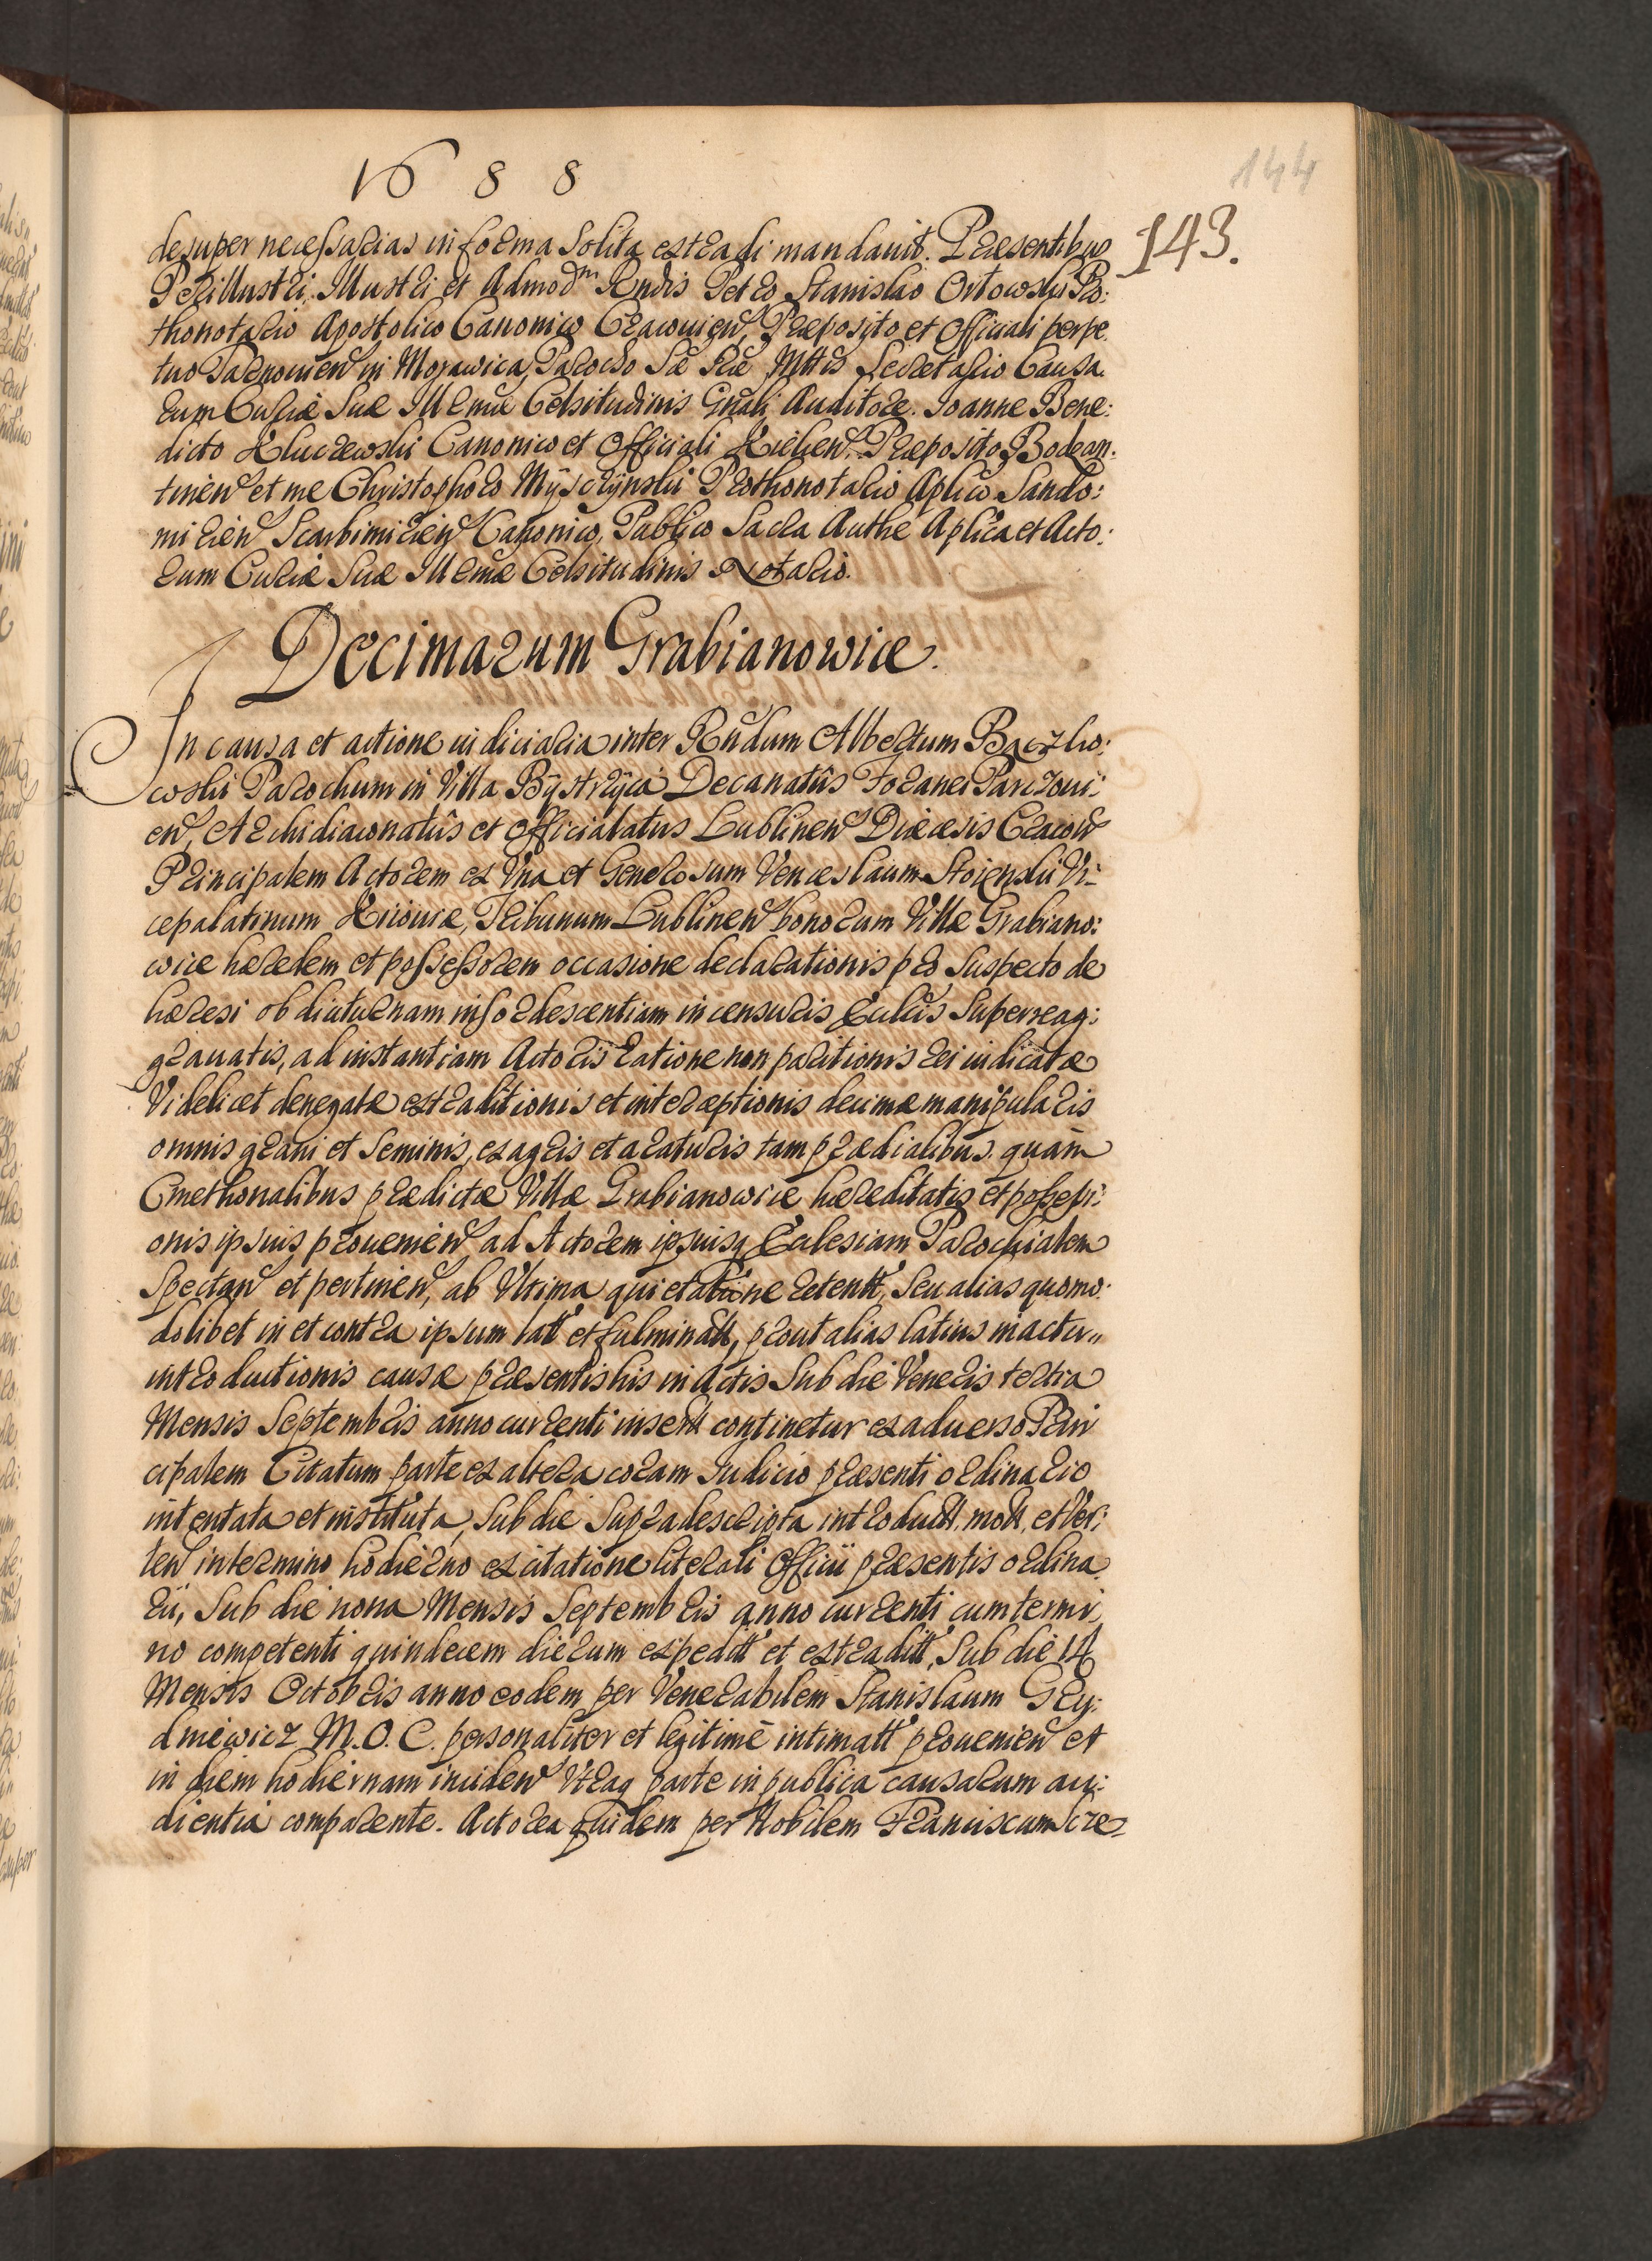 1688
144
143.
desuper necessarias in forma solita extradi mandavit. Præsentibus
Perillustri, Illustri et Admodm Rndis Petro Stanislao Orłowski Pro:
thonotario Apostolico Canonico Cracovien, Præposito et Officiali perpe
tuo Tarnovien in Morawica Parocho Sæ Ræ Mttis Secretario Causa
rum Curiæ Suæ Illrmæ Celsitudinis Gnali Auditore. Joanne Bene:
dicto Kluczewski Canonico et Officiali Kielcen. Præposito Bodzan:
tinen et me Christophoro Myszczynski Prothonotario Aplico Sando:
mirien Scarbimirien Canonico, Publico Sacra Authe Aplica et Acto:
rum Curiæ Suæ Illrmæ Celsitudinis Notario.
Decimarum Grabianowice.
In causa et actione iudiciaria inter Rndum Albertum Baczko:
wski Parochum in Villa Bystrzyca Decanatûs Foranei Parczovi:
en, Archidiaconatûs et Officialatus Lublinen Diæcesis Cracovn
Principalem Actorem ex Una et Generosum Venceslaum Stoienski Vi:
cepalatinum Kiioviæ, Tribunum Lublinen bonorum Villæ Grabiano:
wice hæredem et possessorem occasione declarationis pro suspecto de
hæresi ob diuturnam insordescentiam in censuris Ecclicis superreag:
gravatis, ad instantiam Actoris ratione non paritionis rei iudicatæ
Videlicet denegatæ extraditionis et interceptionis decimæ manipularis
omnis grani et seminis, ex agris et araturis tam prædialibus quàm
Cmethonalibus prædictæ Villæ Grabianowice hæreditatis et possessi:
onis ipsius provenien ad Actorem ipsiusq Ecclesiam Parochialem
Spectan et pertinen, ab Ultima quietatione retentt, seu alias quomo:
dolibet in et contra ipsum latt et fulminatt, prout alias latius in actu
introductionis causæ præsentis his in Actis Sub die Veneris tertia
Mensis Septembris anno currenti insertt continetur ex adverso Prin
cipalem Citatum parte ex altera coram Iudicio præsenti ordinario
intentata et instituta, Sub die supradescripta introductt, mott, et Ver:
ten in termino hodierno ex citatione literali Officii præsentis ordina
rii, Sub die nona Mensis Septembris anno currenti cum termi
no competenti quindecem dierum expeditt et extraditt, Sub die 14
Mensis Octobris anno eodem per Venerabilem Stanislaum Gry:
dniewicz M.O.C. personaliter et legitimè intimatt provenien et
in diem hodiernam inciden Utraq parte in publica causarum au:
dientia comparente. Actorea quidem per Nobilem Franciscum Scze